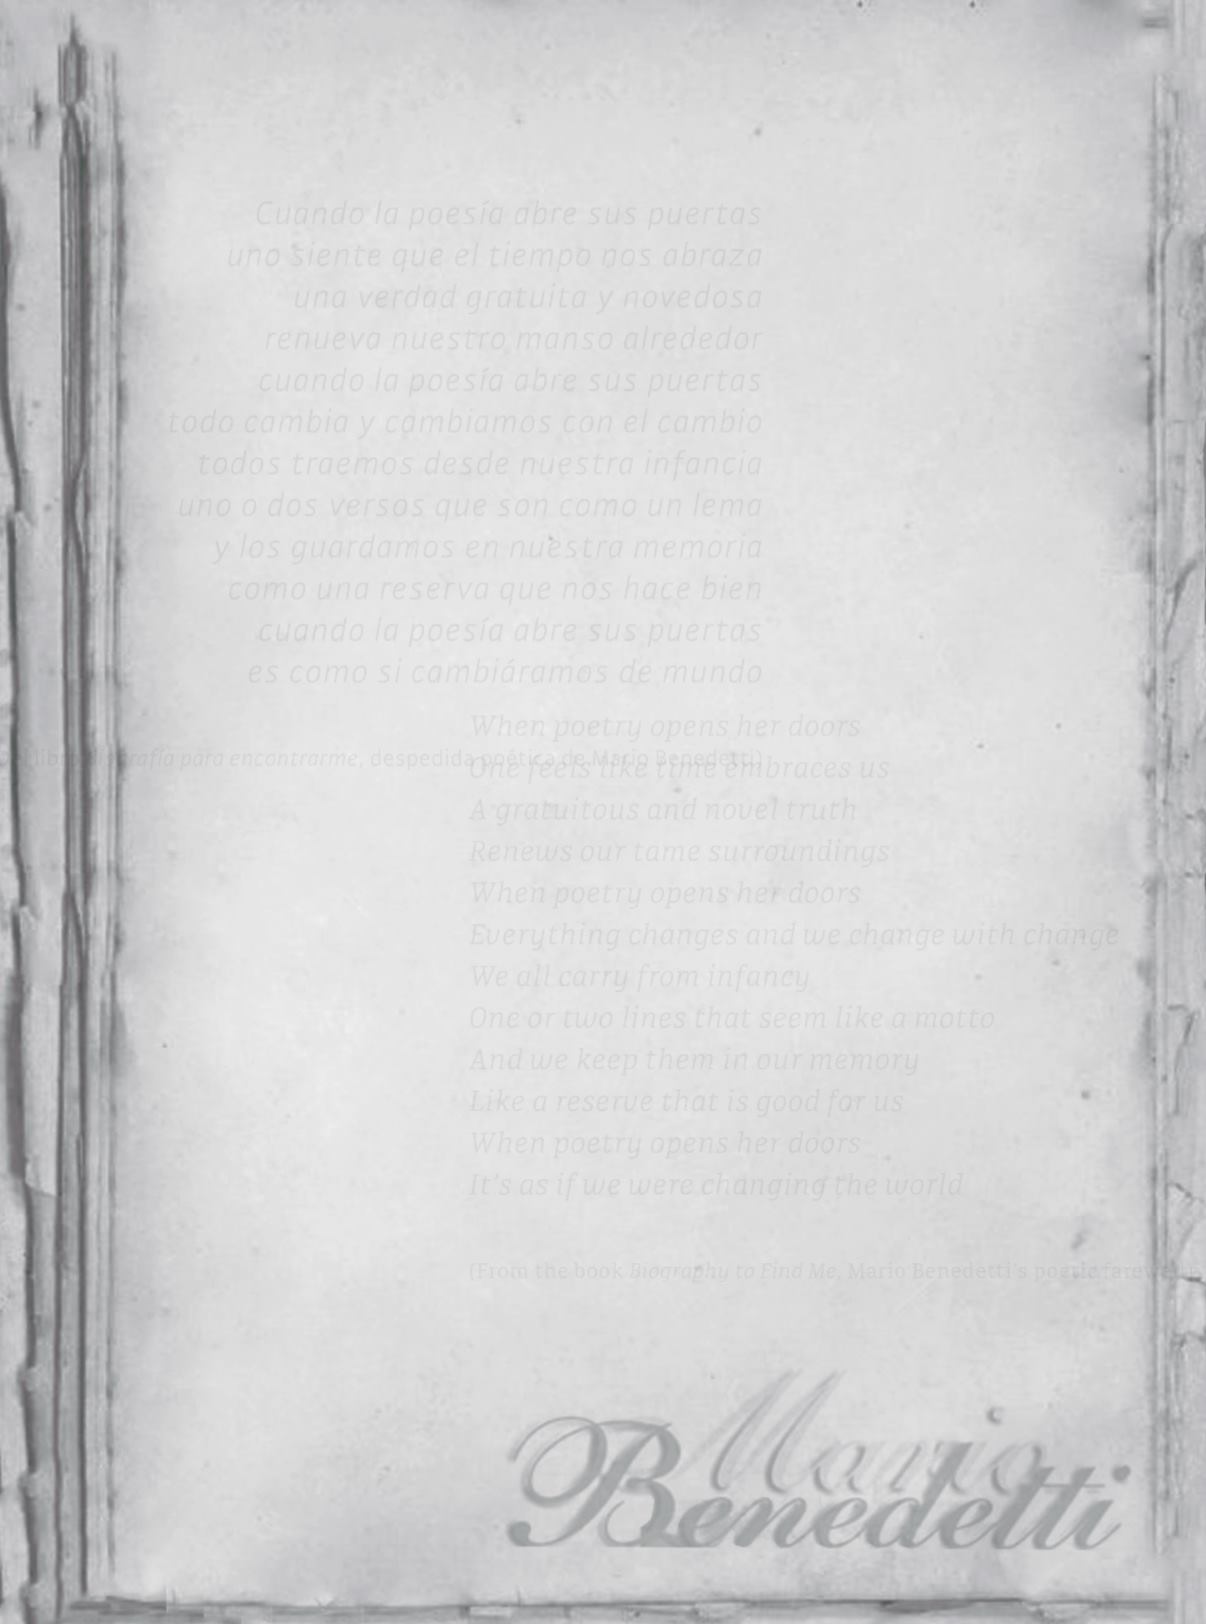 Cuando la poesía abre sus puertas
uno siente que el tiempo nos abraza
una verdad gratuita y novedosa
renueva nuestro manso alrededor
cuando la poesía abre sus puertas
todo cambia y cambiamos con el cambio
todos traemos desde nuestra infancia
uno o dos versos que son como un lema
y los guardamos en nuestra memoria
como una reserva que nos hace bien
cuando la poesía abre sus puertas
es como si cambiáramos de mundo
libro para encontrarme, despedida poética de Mario Benedetti)
When poetry opens her doors
One feels like time embraces us
A gratuitous and novel truth
Renews our tame surroundings
When poetry opens her doors
Everything changes and we change with change
We all carry from infancy
One or two lines that seem like a motto
And we keep them in our memory
Like a reserve that is good for us
When poetry opens her doors
It's as if we were changing the world
(From the book Biography to Find Me, Mario Benedetti's poetic
Mario
Benedetti